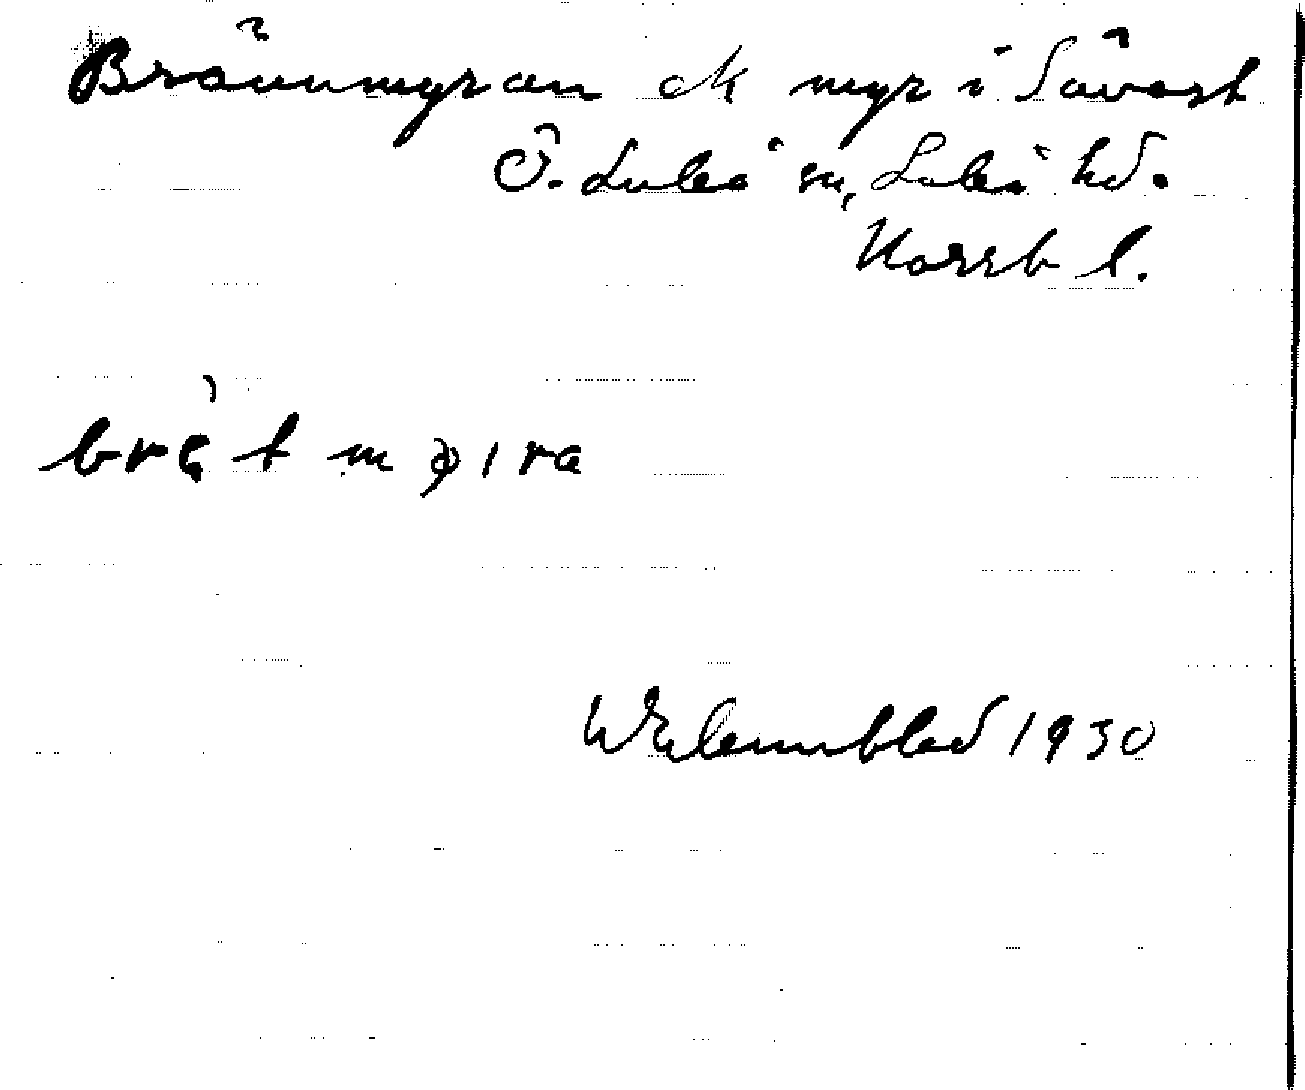 Brännmyran ok myr i Sävast
Ö. Luleå sn, Luleå hd.
Norrb l.
W Ehlemblad 1930